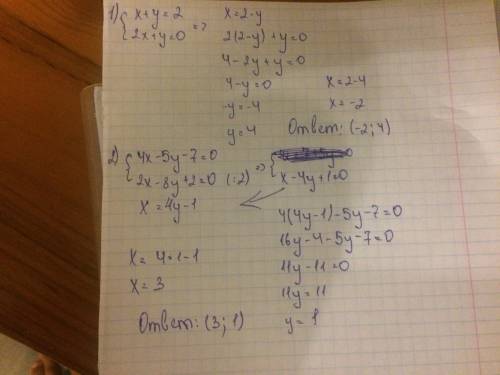 1) { x+y=2
2x+y=0 => x=2-y
2(2-y)+y=0
4-2y+y=0
4-y=0
-y=-4
y=4
x=2-4
x=-2
Ответ: (-2; 4)
2) { 4x-5y-7=0
2x-8y+2=0 (:2) => { x-4y+1=0
x=4y-1
4(4y-1)-5y-7=0
16y-4-5y-7=0
11y-11=0
11y=11
y=1
x=4=1-1
x=3
Ответ: (3; 1)